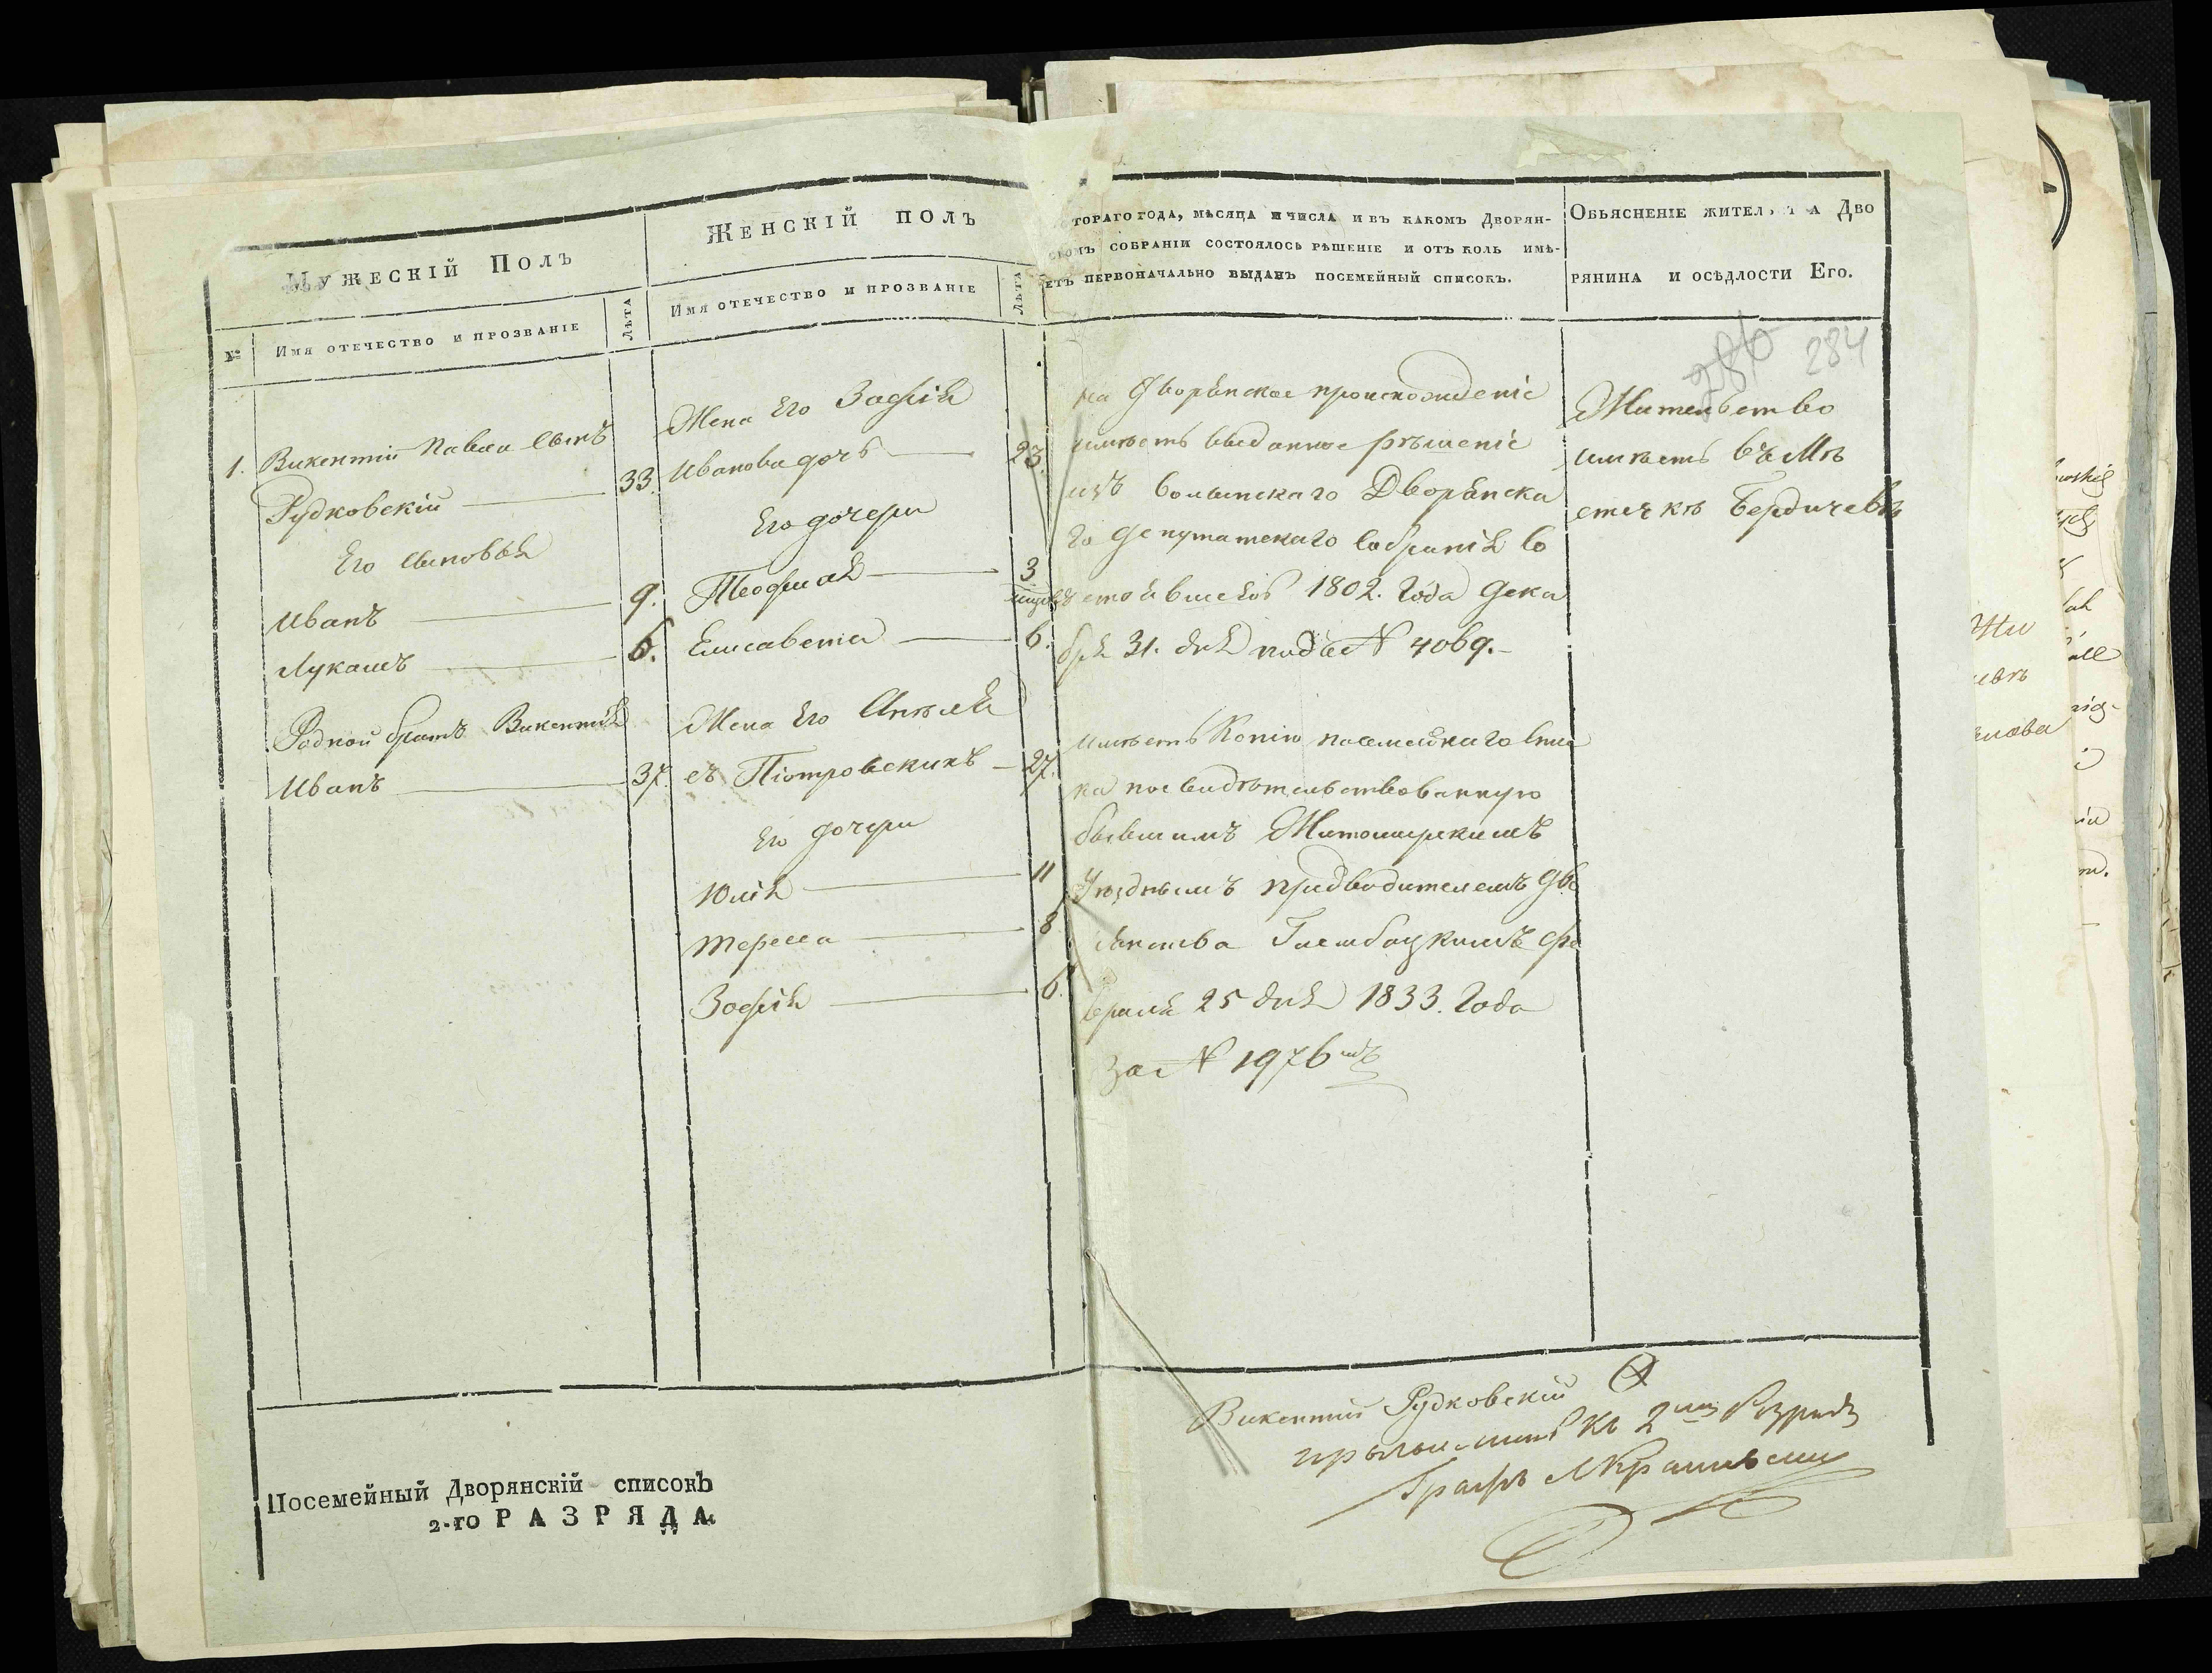 Мужескій Полъ
Женскій полъ
тораго года, мѣсяца и числа и въ какомъ Дворян-
скомъ собраніи состоялось рѣшеніе и отъ коль имѣ-
етъ первоначально выданъ посемейный списокъ.
Обьясненіе жител т а Дво
рянина и осѣдлости Его.
№
Имя отечество и прозваніе
Лѣта
Имя отечество и прозваніе
Лѣта
286 284
1. Викентій Павла сынъ
Рудковскій 33.
Его сыновья
Иванъ 9.
Лукашъ 6.
Родной братъ Викентія
Иванъ 37.
Жена Его Зафія
Иванова дочь 23.
Его дочери
Теофила 3
Елисавета 6.
Жена Его Анѣля
съ Піотровскихъ 27.
Его дочери
Юлія 11
Тересса 8
Зофія 6.
на дворянское происхожденіе
имѣетъ выданное рѣшеніе
изъ Волынскаго Дворянска
го депутатскаго собранія со
стоявшееся 1802. Года Дека
бря 31. дня подъ № 4069.
имѣетъ Копію посемейнаго спис
ка посвидѣтельствованную
бывшимъ Житомирскимъ
Уѣзднымъ предводителемъ дво
рянства фе
враля 25 дня 1833. Года
За № 1976мъ
Жительство
имѣетъ въ Мѣ
стечкѣ Бердичевѣ
Викентій Рудковскій
къ 2му Разряду
Графъ
Посемейный Дворянскій списокъ
2-го РАЗРЯДА.